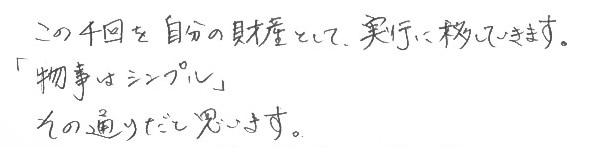 この千回を自分の財産として、実行に移していきます。
「物事はシンプル」
その通りだと思います。